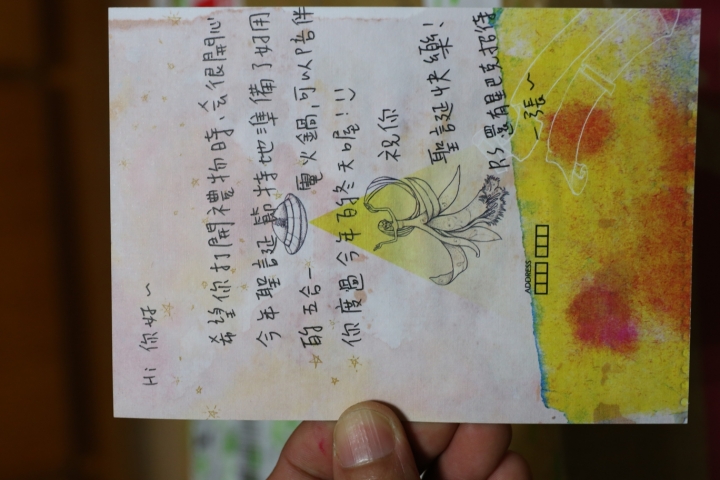 Hi 你好~
希望你打開禮物時、会很開心
今年聖誕節特地準備了好用
的五合一電火鍋,可以陪伴
你度過今年的冬天喔!!
祝你
聖誕快樂!
P.S 還有星巴克招待
一張~
ADDRESS